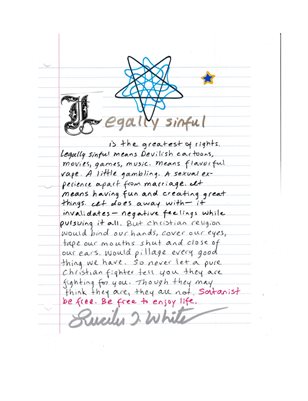 Legally sinful
is the greatest of rights.
Legally sinful means Devilish cartoons,
movies, games, music. Means flavorful
vape. A little gambling. A sexual ex-
perience apart from marriage. It
means having fun and creating great
things. It does away with – it
invalidates – negative feelings while
pursuing it all. But Christian religion
would bind our hands, cover our eyes,
tape our mouths shut and close of
our ears. Would pillage every good
thing we have. So never let a pure
Christian fighter tell you they are
fighting for you. Though they may
think they are, they are not. Satanist
be free. Be free to enjoy life.
Lucifer J. White